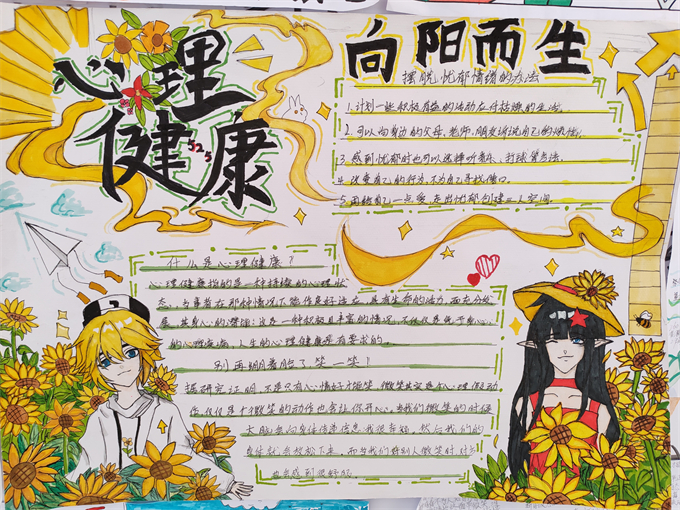 心理
健康
525
向阳而生
摆脱忧郁情绪的方法
1.计划一些积极有益的活动应付枯燥的生活。
2.可以向身边的父母、老师、朋友诉说自己的烦恼。
3.感到忧郁时也可以选择听音乐、打球等方法。
4.注意自己的行为,不为自己寻找借口。
5.再给自己一点爱,走出忧郁创建二人空间。
什么是心理健康?
心理健康指的是一种持续的心理状
态,当事者在那种情况下能作良好适应,具有生命的活力,而充分发
展其身心的潜能;这乃一种积极且丰富的情况,不仅仅是免于
的心理疾病,人生的心理健康是有要求的。
别再绷着脸了笑一笑!
据研究证明,不是只有心情好才能笑,微笑其实是个心理
作,仅仅是个微笑的动作也会让你开心,当我们微笑的时候
大脑会向身体传递信息:我很幸福,然后我们的
身体就会放松下来,而当我们对别人微笑时,
也会感到很舒服。